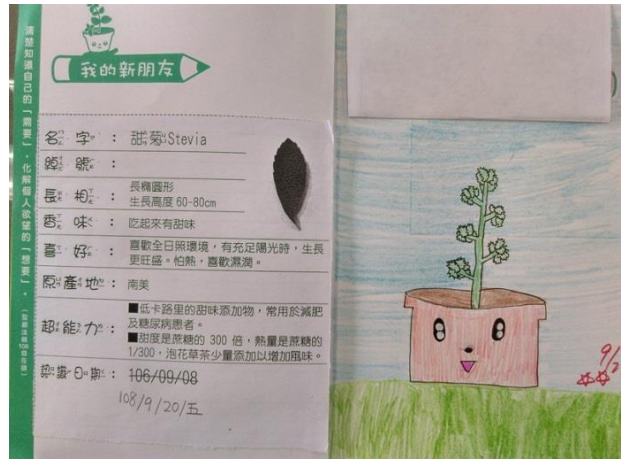 清楚知道自己的「需要」，化解個人欲望的「想要」。
我的新朋友
名字： 甜菊Stevia
綽號：
長相： 長橢圓形
生長高度 60-80cm
香味： 吃起來有甜味
喜好： 喜歡全日照環境，有充足陽光時，生長
更旺盛。怕熱，喜歡濕潤。
原產地： 南美
超能力： ■低卡路里的甜味添加物，常用於減肥
及糖尿病患者。
■甜度是蔗糖的 300 倍，熱量是蔗糖的
1/300，泡花草茶少量添加以增加風味。
認識日期： 106/09/08
108/9/20/五